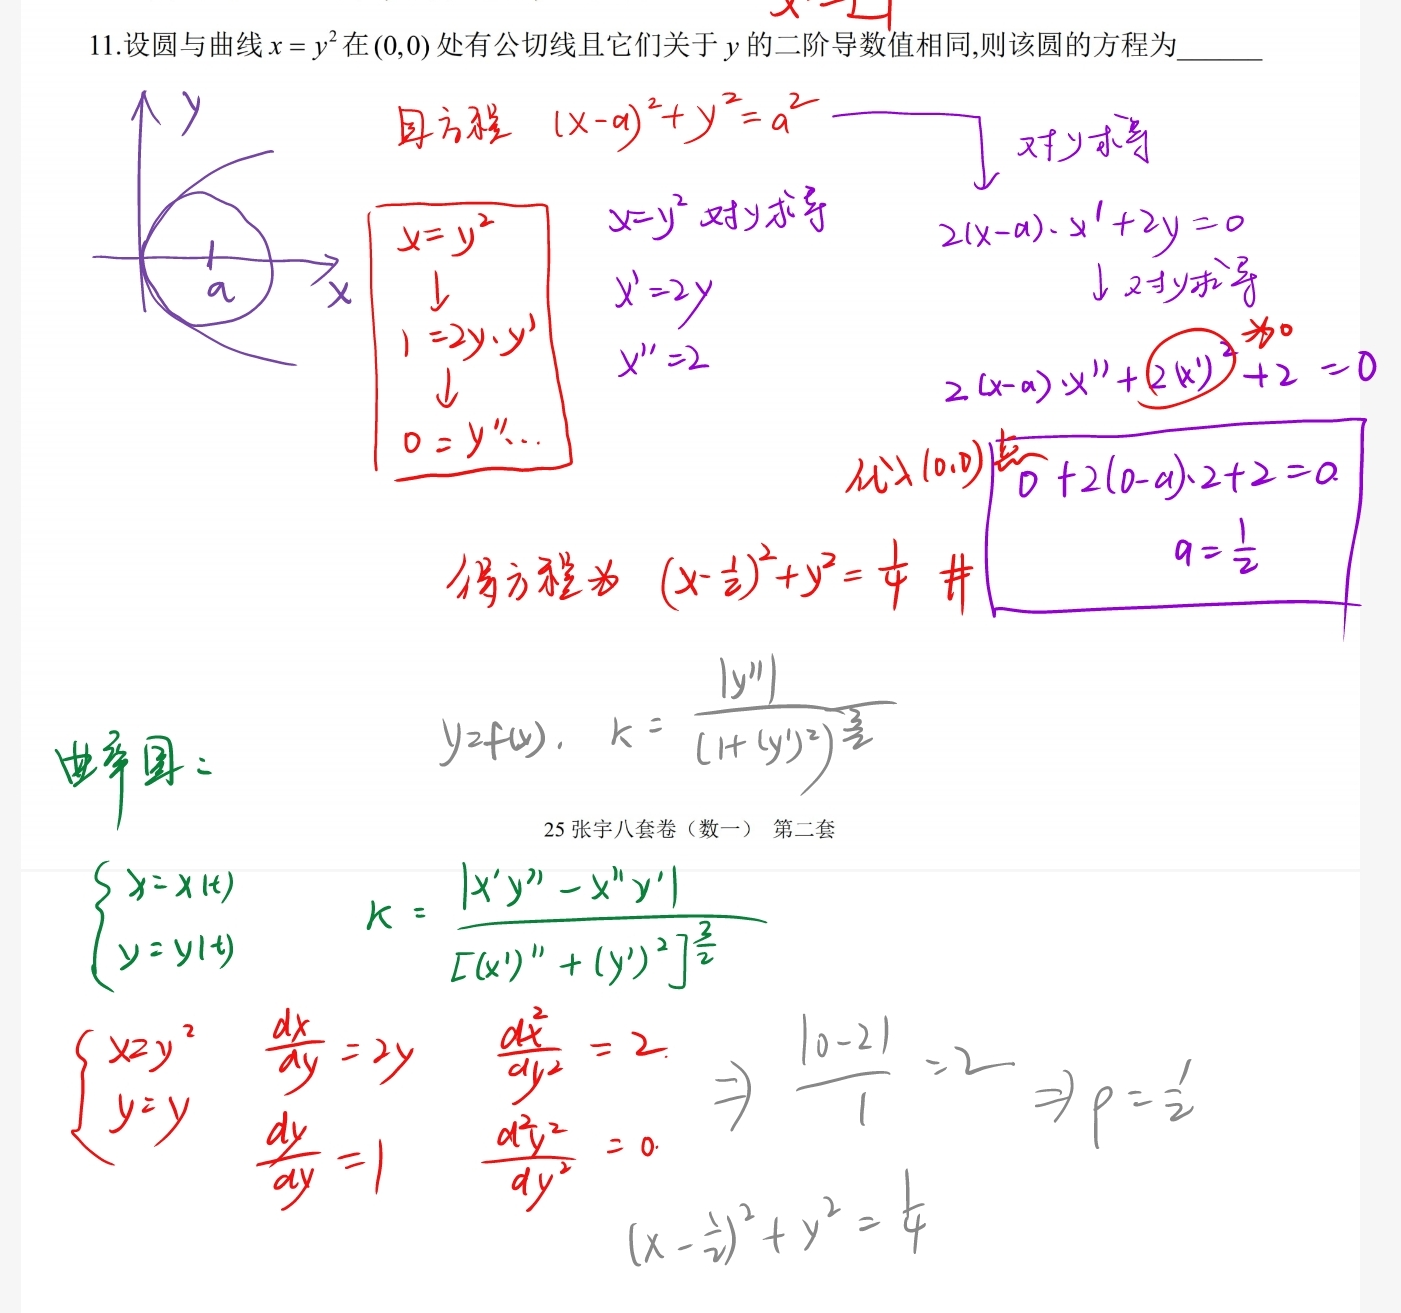 11.设圆与曲线 x = y² 在 (0,0) 处有公切线且它们关于 y 的二阶导数值相同,则该圆的方程为______
y
x
a
圆方程 (x-a)²+y²=a²
对y求导
x=y²
↓
1=2y·y'
↓
0=y''...
x=y² 对y求导
x'=2y
x''=2
2(x-a)·x'+2y=0
↓对y求导
2(x-a)·x''+2(x')²+2=0
为0
代入(0,0)点
0+2(0-a)·2+2=0
a=1/2
得方程为 (x-1/2)²+y²=1/4 #
y=f(x). k=|y''|/(1+(y')²)^(3/2)
曲率圆:
25 张宇八套卷（数一） 第二套
{x=x(t)
y=y(t)
k=|x'y''-x''y'|/[(x')''+(y')²]^(3/2)
{x=y²
y=y
dx/dy=2y
dx²/dy²=2.
dy/dy=1
d²y²/dy²=0.
⇒ |0-2|/1=2 ⇒ρ=1/2
(x-1/2)²+y²=1/4